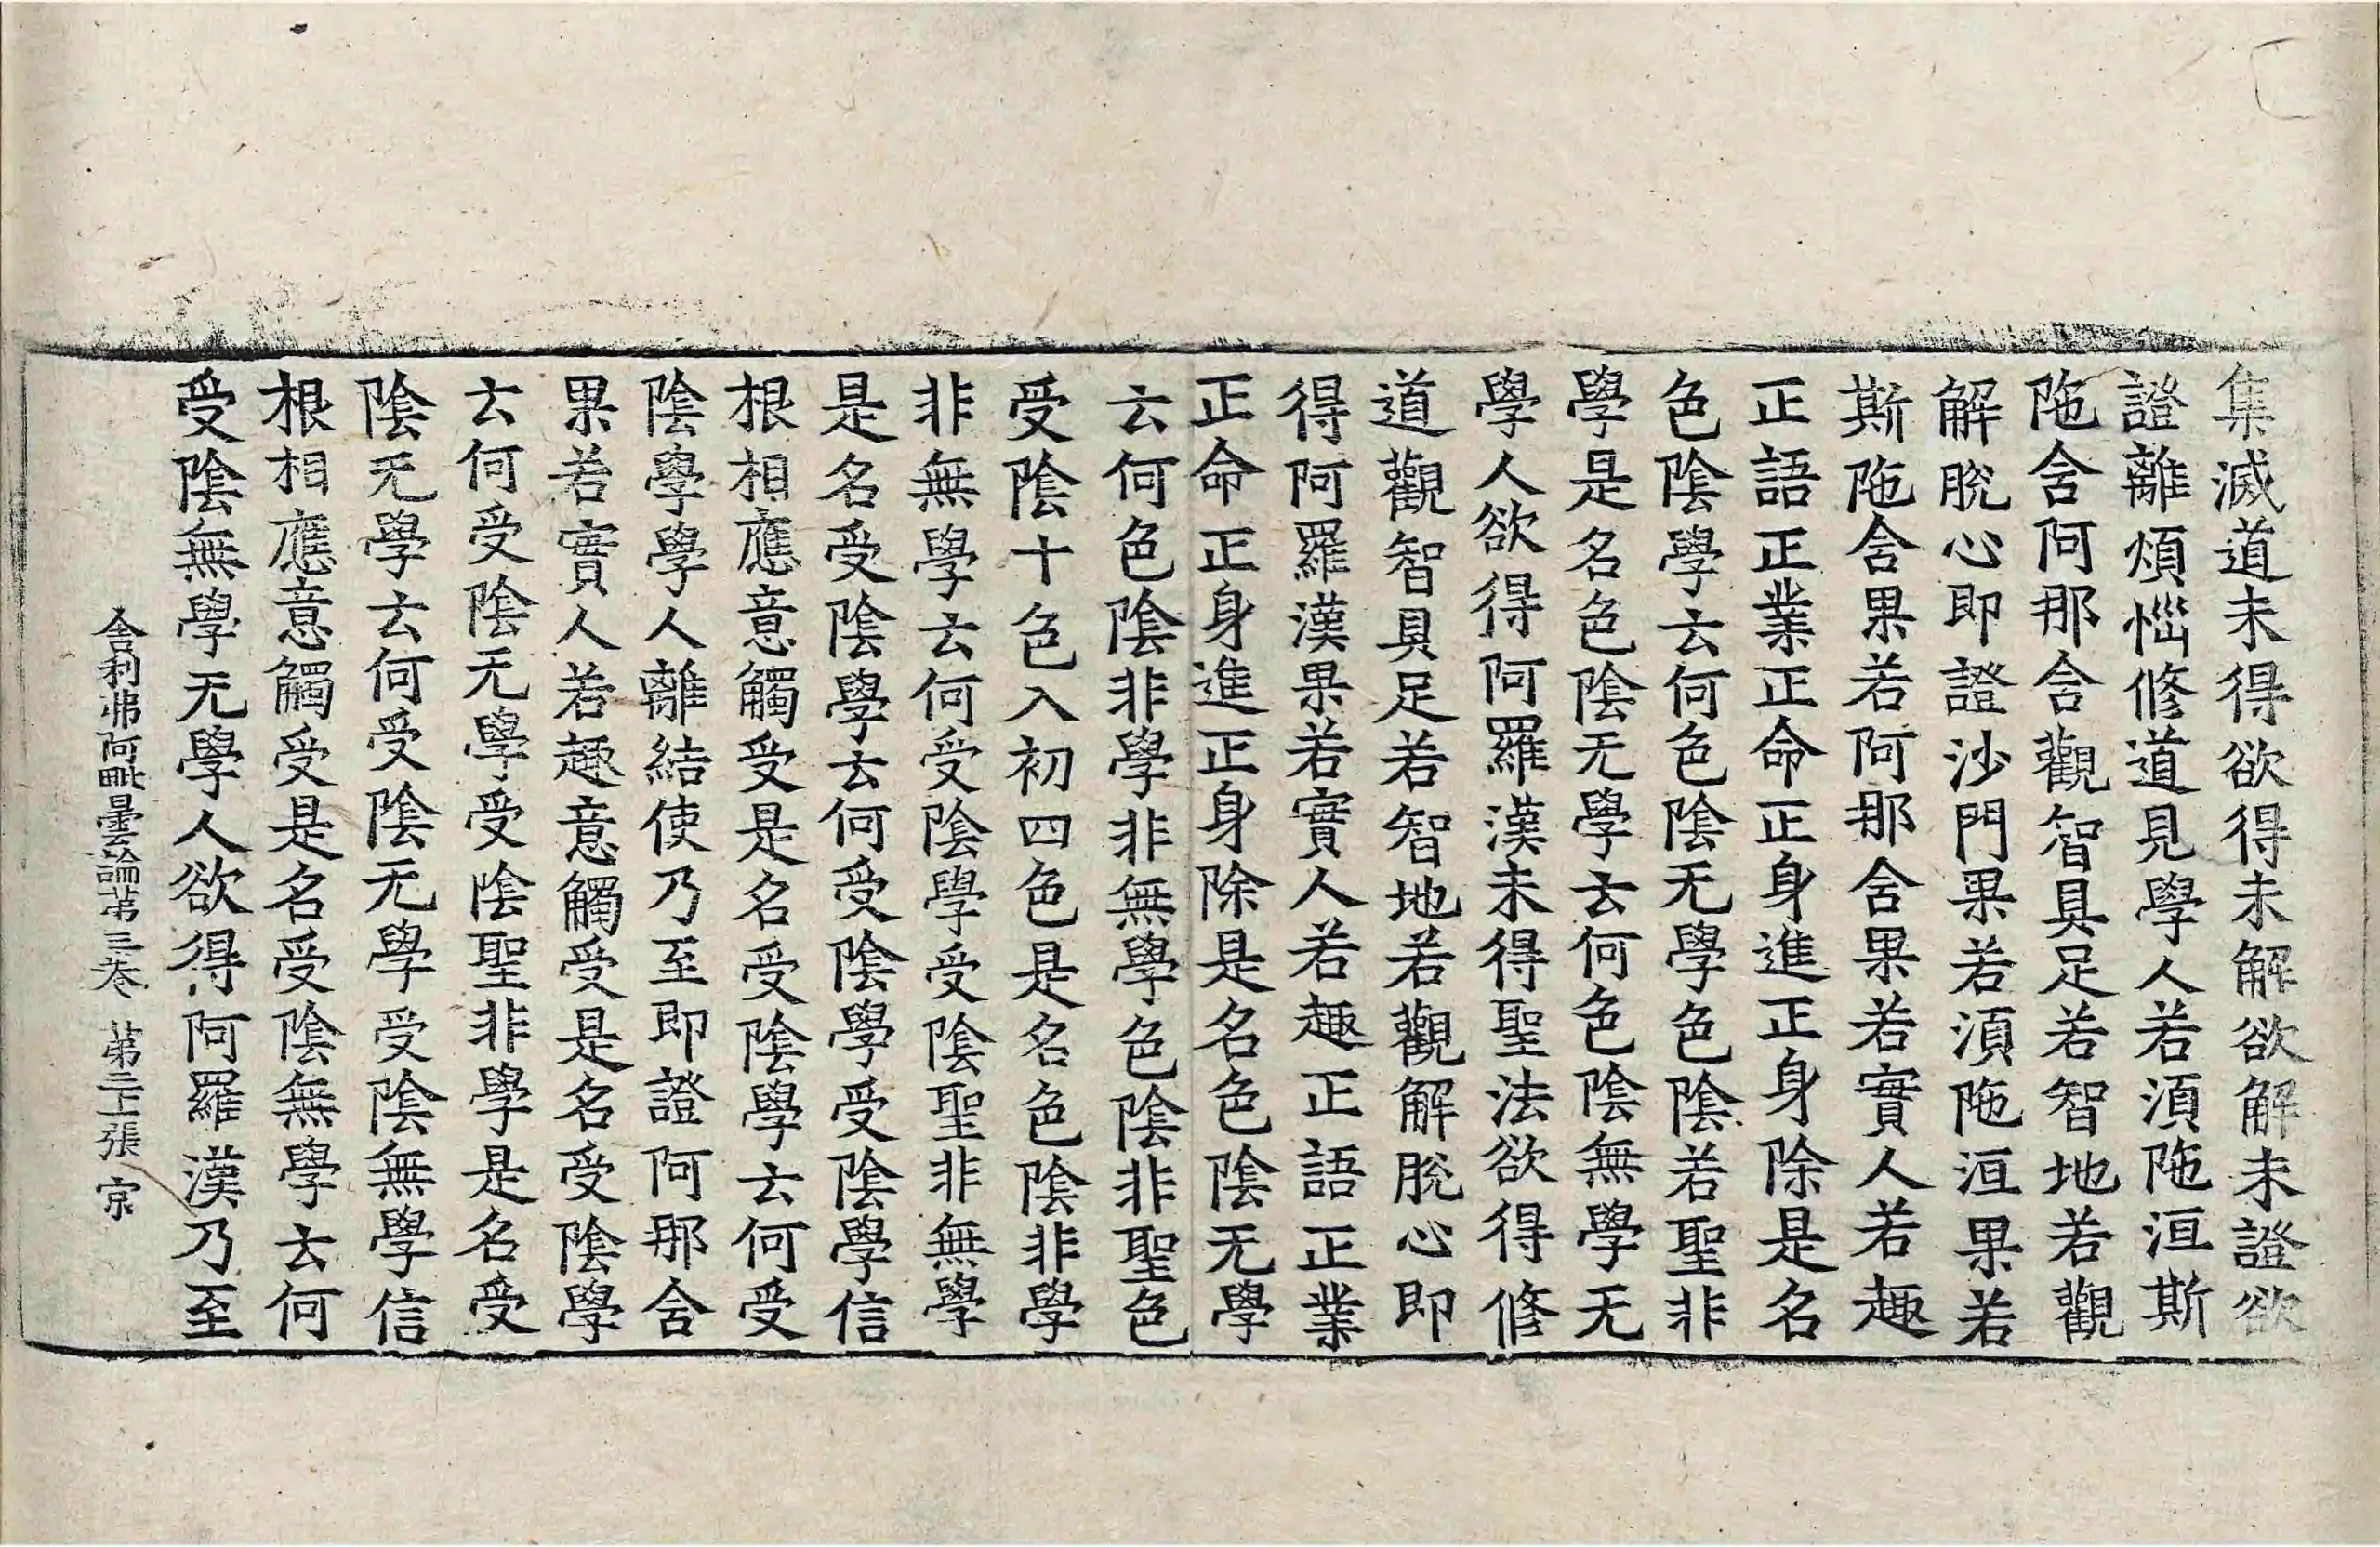 集滅道未得欲得未解欲解未證欲
證離煩惱修道見學人若湏陁洹斯
陁舍阿那舍觀智具足若智地若觀
解脫心即證沙門果若湏陁洹果若
斯陁舍果若阿那舍果若實人若趣
正語正業正命正身進正身除是名
色陰學云何色陰无學色陰若聖非
學是名色陰无學云何色陰無學无
學人欲得阿羅漢未得聖法欲得修
道觀智具足若智地若觀解脫心即
得阿羅漢果若實人若趣正語正業
正命正身進正身除是名色陰无學
云何色陰非學非無學色陰非聖色
受陰十色入初四色是名色陰非學
非無學云何受陰學受陰聖非無學
是名受陰學云何受陰學受陰學信
根相應意觸受是名受陰學云何受
陰學學人離結使乃至即證阿那舍
果若實人若趣意觸受是名受陰學
云何受陰无學受陰聖非學是名受
陰无學云何受陰无學受陰無學信
根相應意觸受是名受陰無學云何
受陰無學无學人欲得阿羅漢乃至
舍利弗阿毗曇論苐三卷 苐二十張 宗